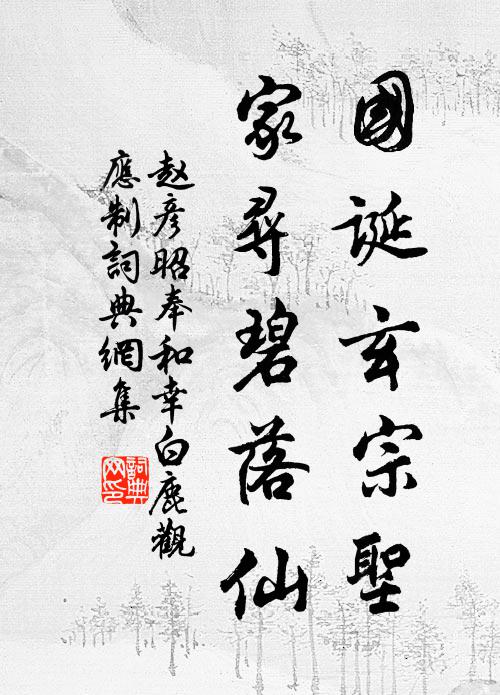 國誕玄宗聖
家尋碧落仙
赵彦昭奉和幸白鹿觀
應制詞典網集
詞典
网印